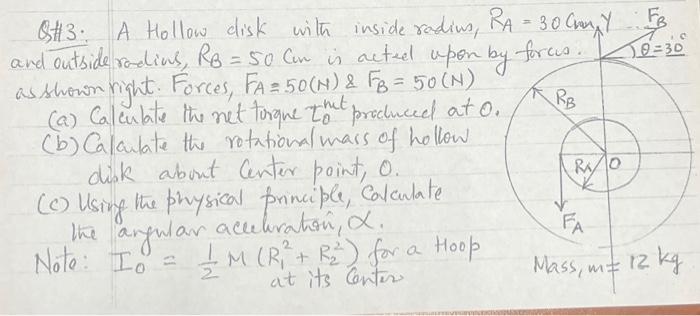 Q#3: A Hollow disk with inside radius, RA = 30 Cm,
and outside radius, RB = 50 Cm is acted upon by forces.
as shown right. Forces, FA = 50(N) & FB = 50(N)
(a) Calculate the net torque τ₀ⁿᵉᵗ produced at O.
(b) Calculate the rotational mass of hollow
disk about Center point, O.
(c) Using the physical principle, Calculate
the angular acceleration, α.
Note: I₀ = 1/2 M (R₁² + R₂²) for a Hoop
at its Center
Y
FB
θ=30°
RB
RA
O
FA
Mass, m = 12 kg